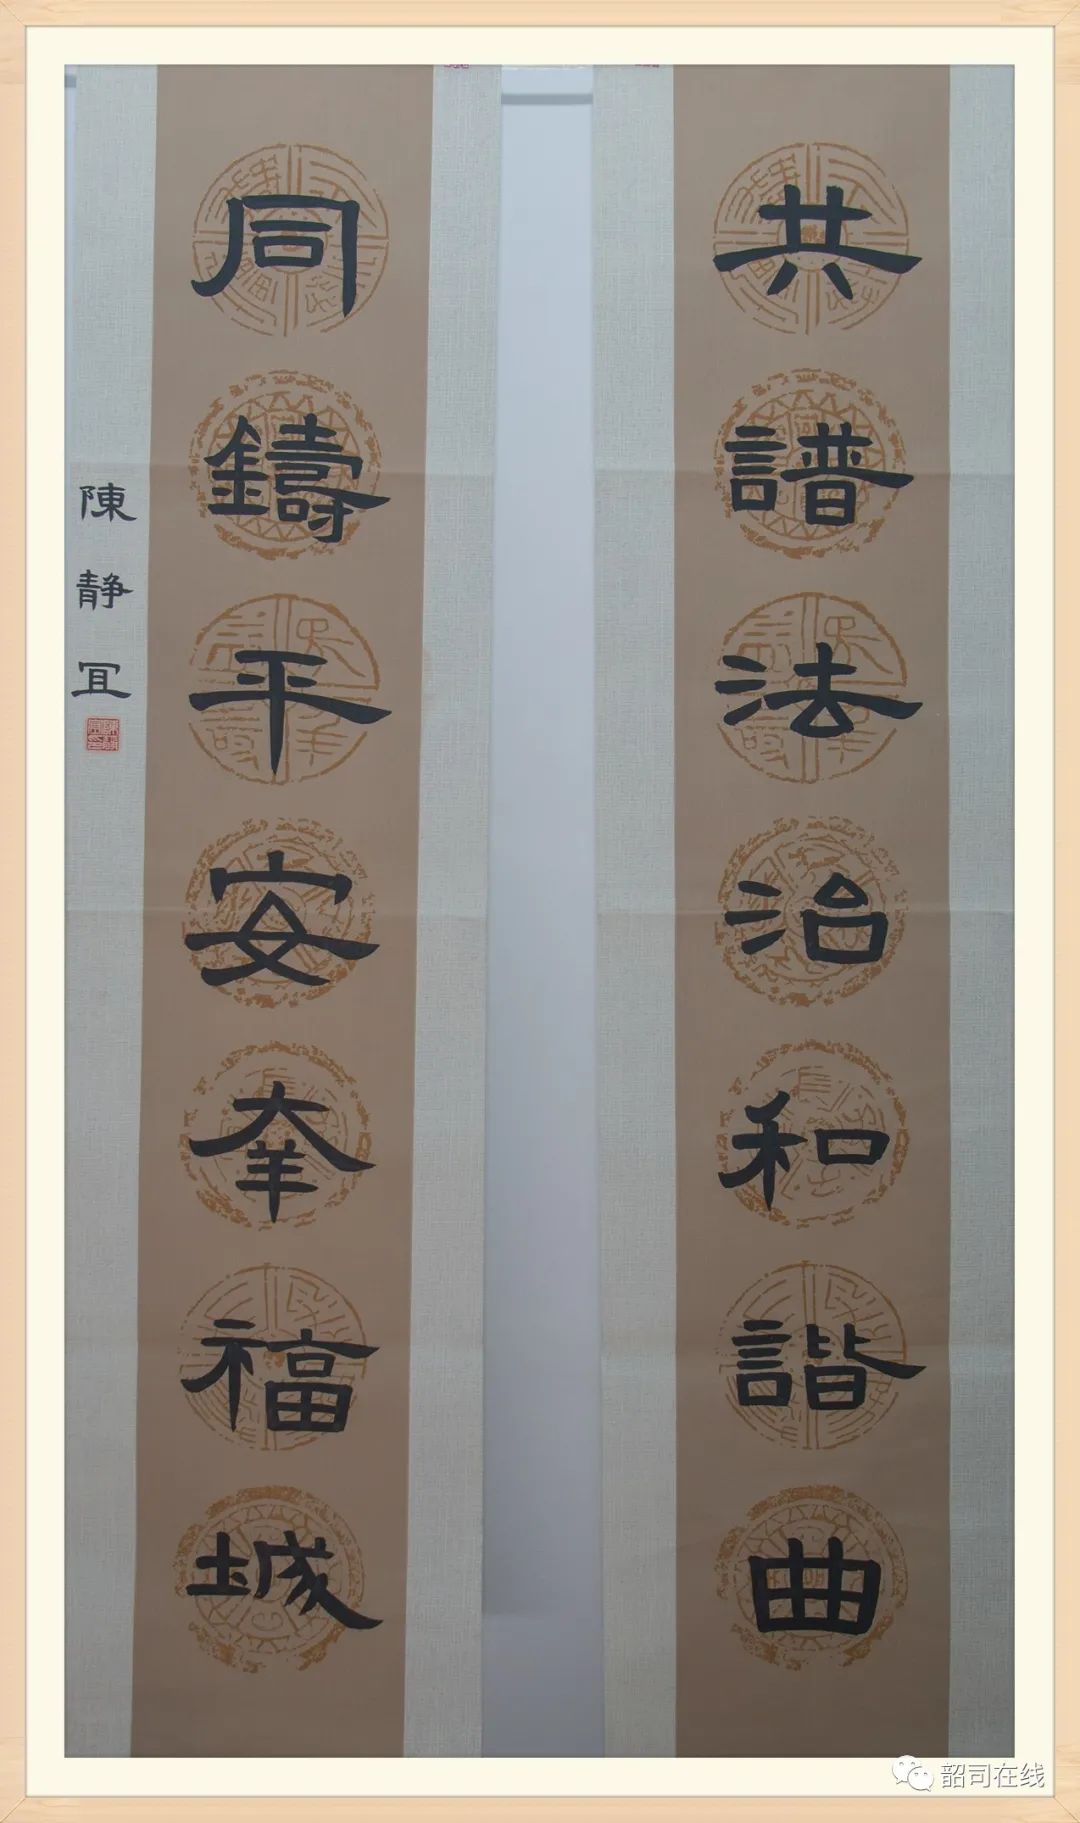 共譜法治和諧曲
同鑄平安幸福城
陳靜宜
韶司在线